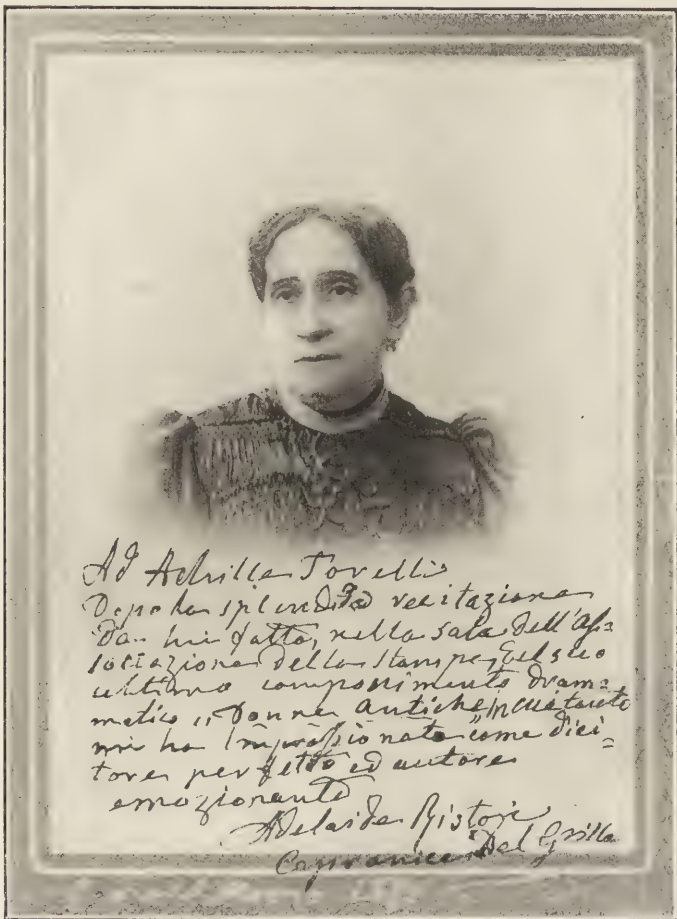 Ad Achille Torelli
Dopo la splendida recitazione
da lui fatta, nella sala dell'As=
sociazione della Stampa, del suo
ultimo componimento dram=
matico "Donne Antiche"
mi ha impressionato come dici=
tore perfetto ed autore
emozionante
Adelaide Ristori
Capranica Del Grillo